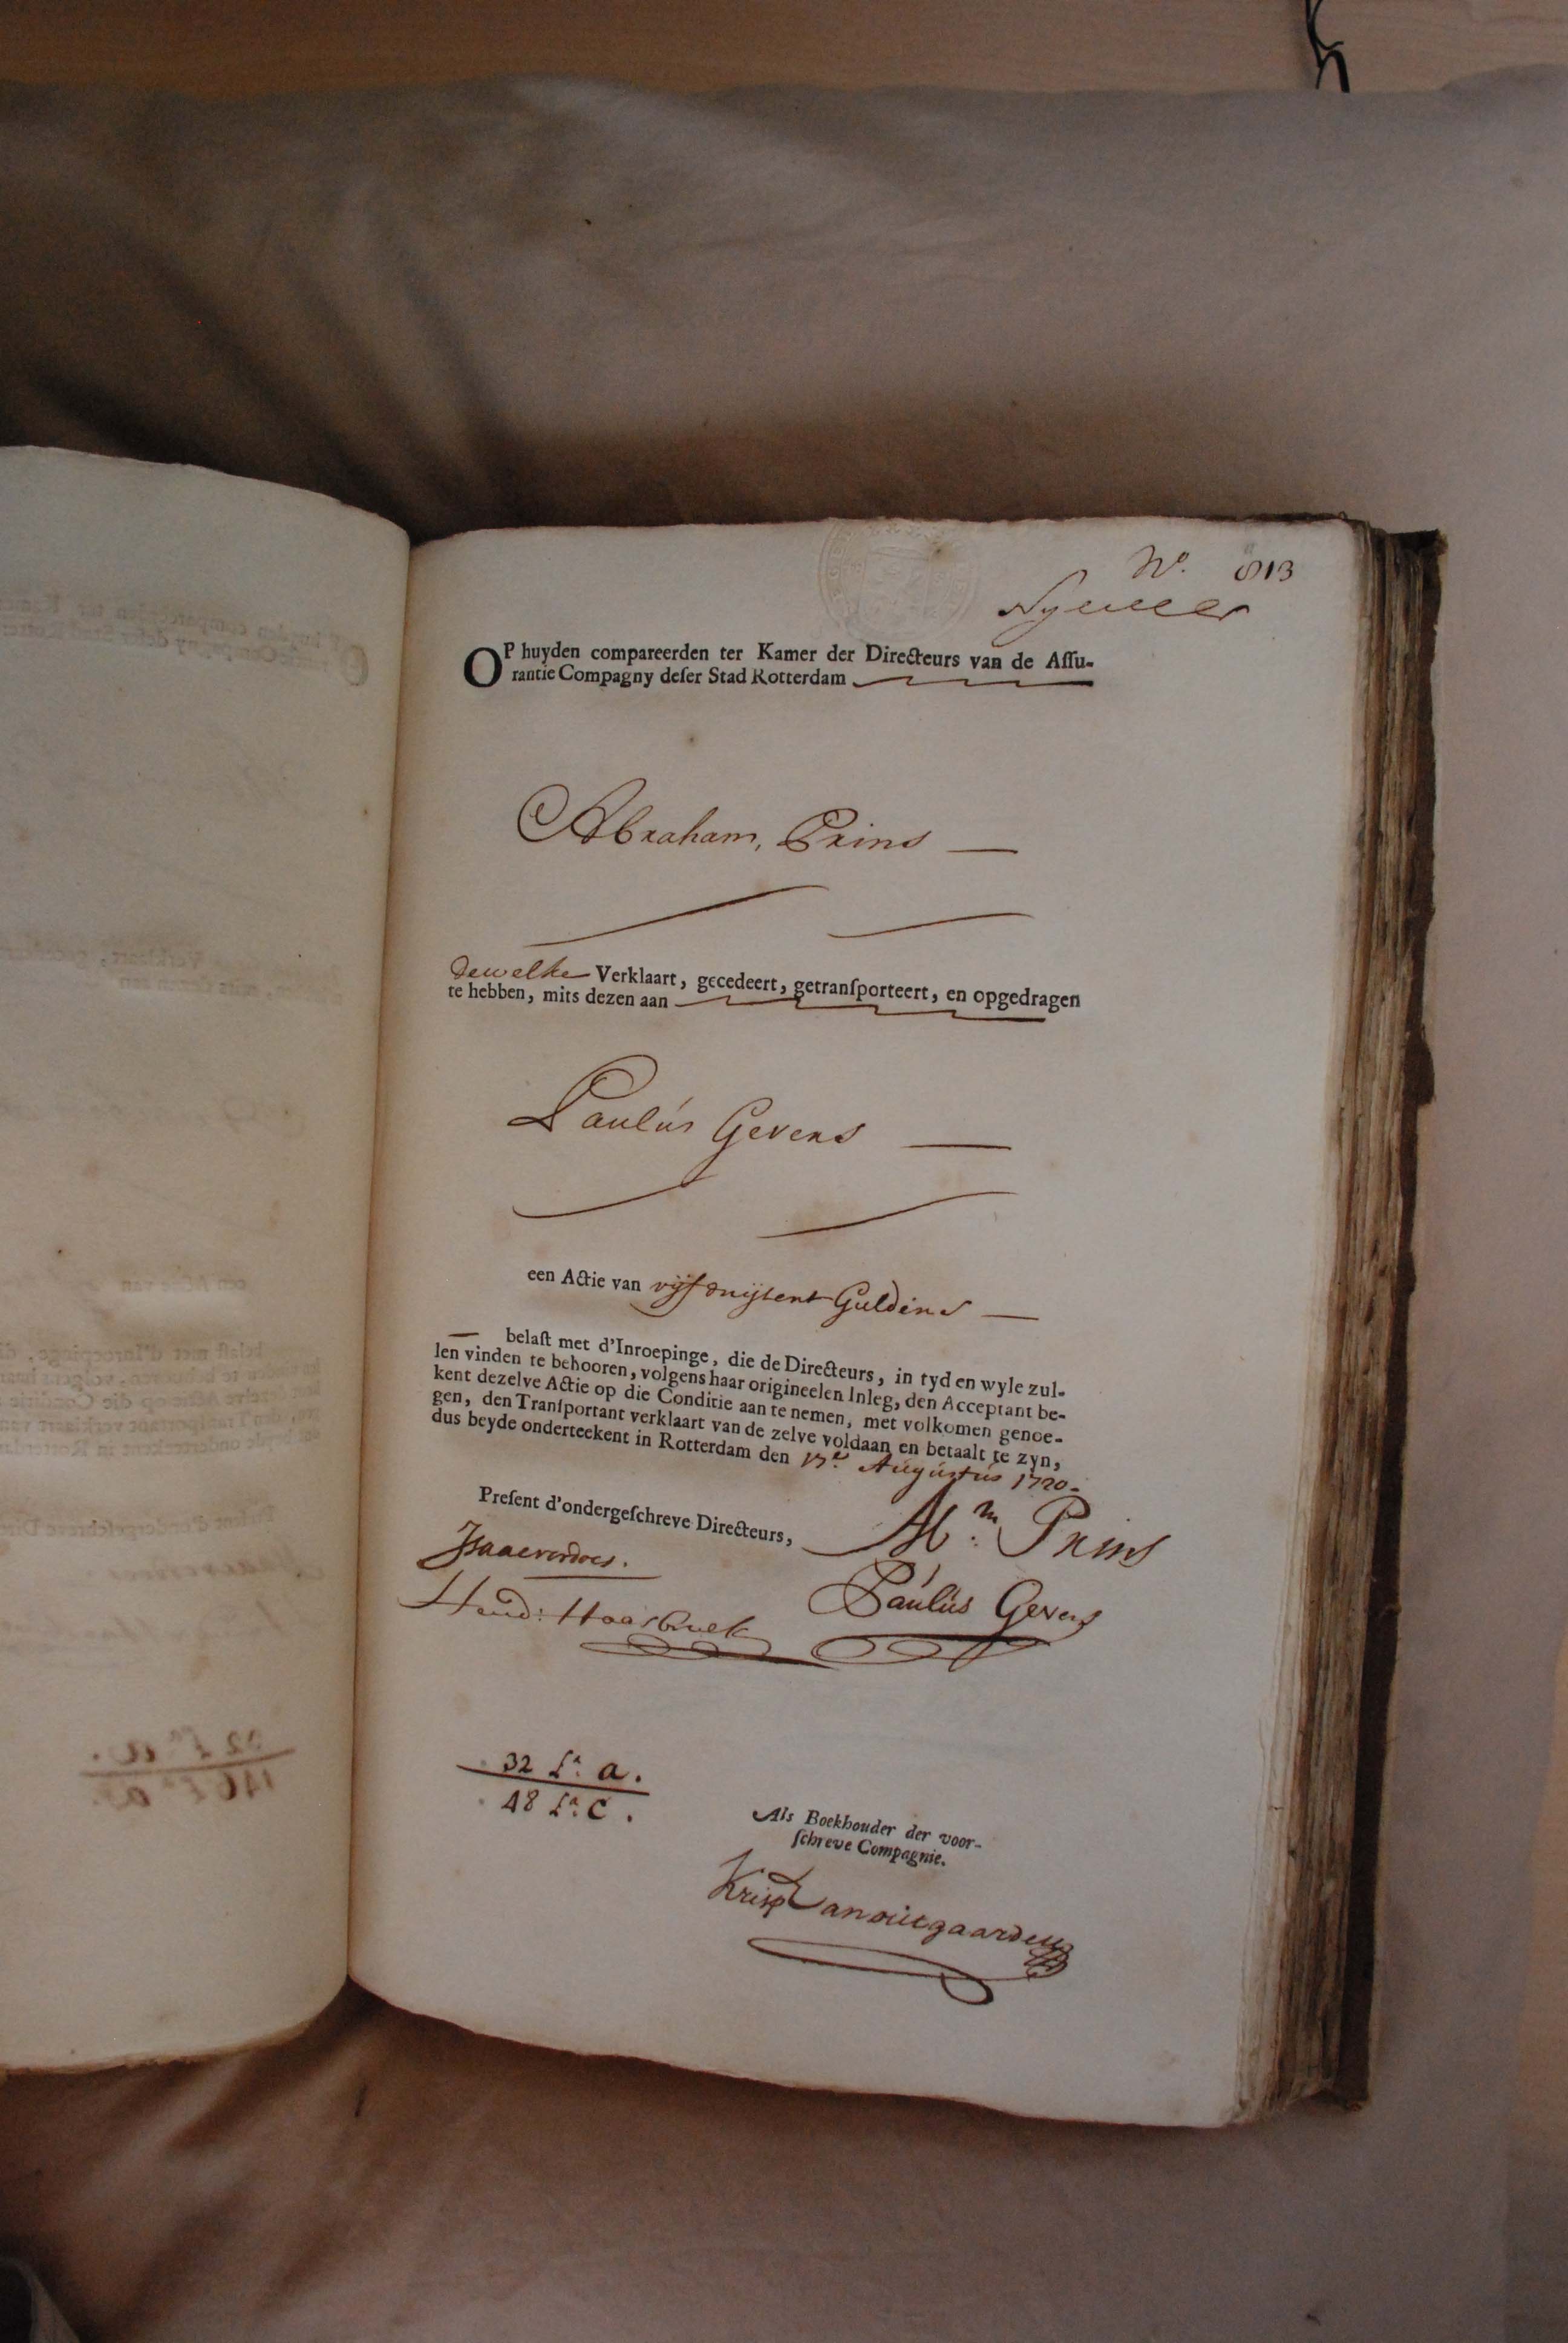 No. 813
OP huyden compareerden ter Kamer der Directeurs van de Aſſu-
rantie Compagny deſer Stad Rotterdam
Abraham, Prins
dewelke Verklaart, gecedeert, getranſporteert, en opgedragen
te hebben, mits dezen aan
Paulús Gevers
een Actie van vijfduijsent Guldens
belaſt met d'Inroepinge, die de Directeurs, in tyd en wyle zul-
len vinden te behooren, volgens haar origineelen Inleg, den Acceptant be-
kent dezelve Actie op die Conditie aan te nemen, met volkomen genoe-
gen, den Tranſportant verklaart van de zelve voldaan en betaalt te zyn,
dus beyde onderteekent in Rotterdam den 17e. Augústús 1720.
Preſent d'ondergeſchreve Directeurs,
Abm. Prins
Isaac verdoes.
Paúlús Gevers
Hend: Haasbroek
32 La. a.
48 La. C.
Als Boekhouder der voor-
ſchreve Compagnie.